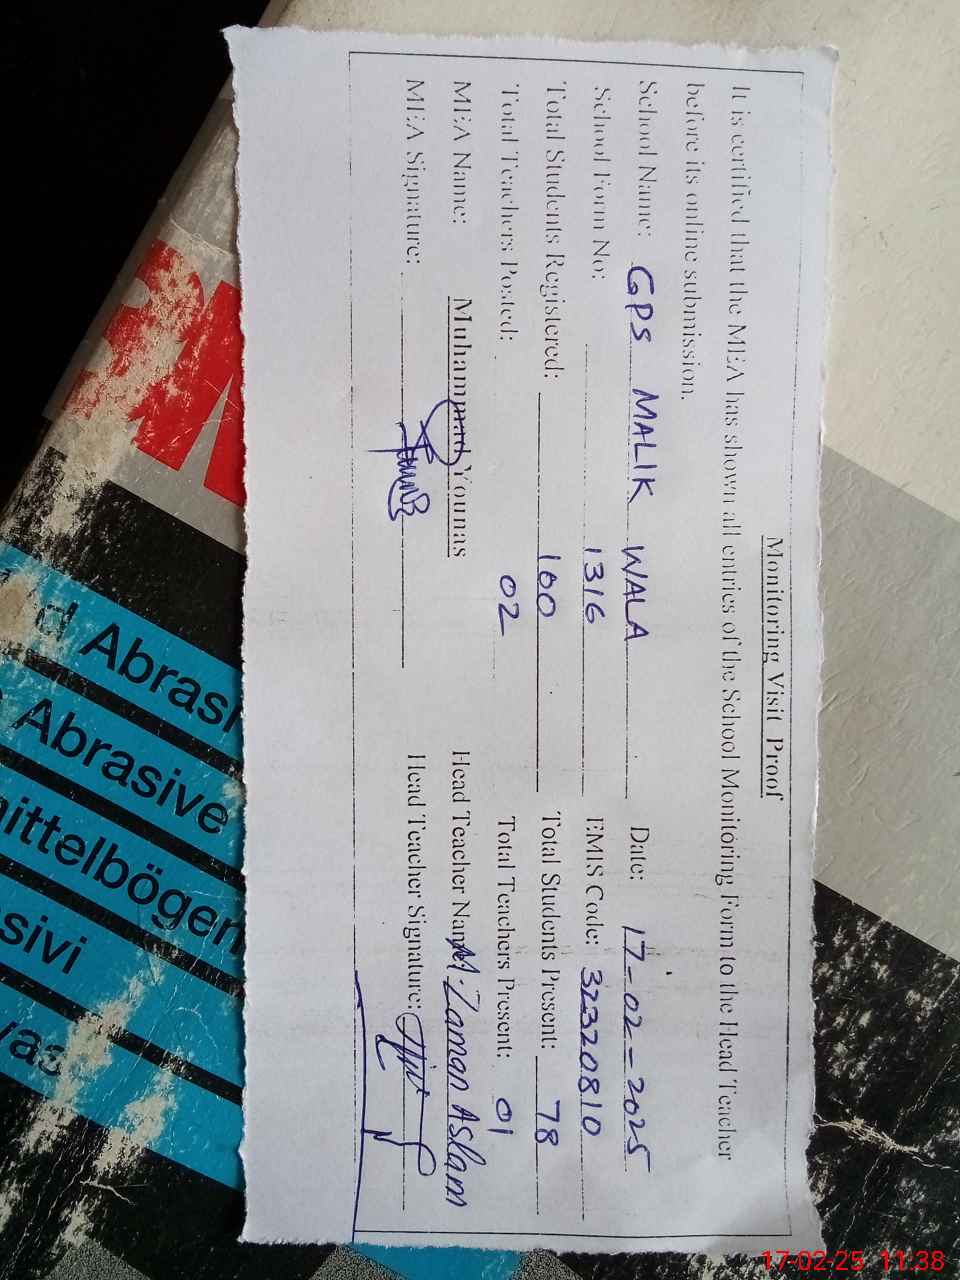 Monitoring Visit Proof
It is certified that the MEA has shown all entries of the School Monitoring Form to the Head Teacher
before its online submission.
School Name: GPS MALIK WALA Date: 17-02-2025
School Form No: 1316 EMIS Code: 32320810
Total Students Registered: 100 Total Students Present: 78
Total Teachers Posted: 02 Total Teachers Present: 01
MEA Name: Muhammad Younas Head Teacher Name M. Zaman Aslam
MEA Signature: Head Teacher Signature:
d Abrasi
Abrasive
ittelbögen
sivi
vas
17-02-25 11:38